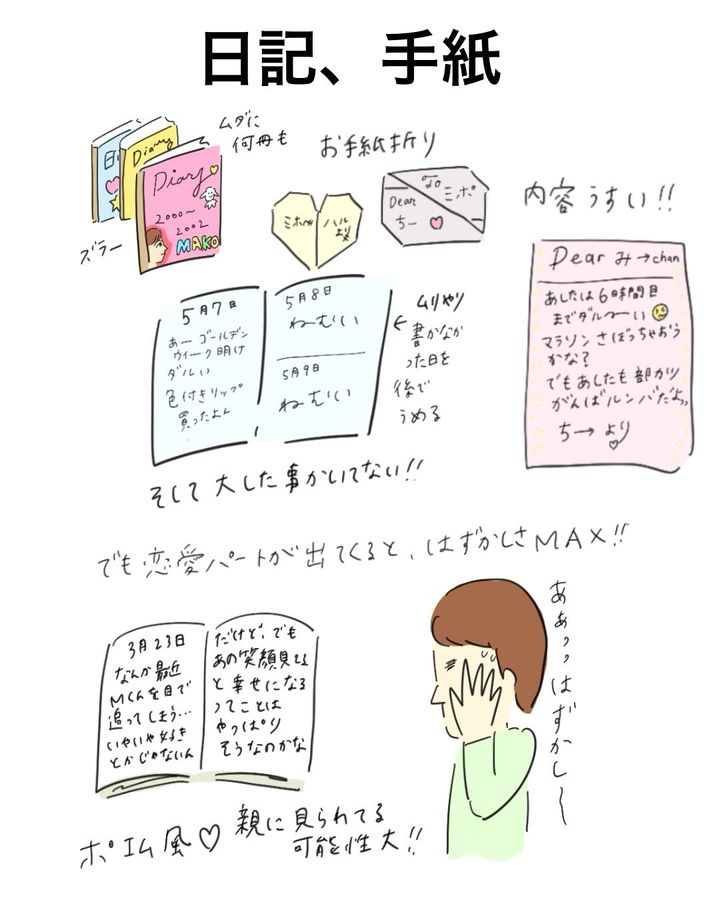 日記、手紙
ムダに
何冊も
お手紙折り
Diary
Diary
2000〜
2002
MAKO
ズラー
ミホへ
ハル
より
To
ミポ
Dear
ちー
内容うすい!!
Dear み→chan
あしたは6時間目
までダル〜い
マラソンさぼっちゃおう
かな?
でもあしたも部かツ
がんばルンバだよッ
ち→より
5月7日
あーゴールデン
ウィーク明け
ダルい
色付きリップ
買ったよん
5月8日
ねーむい
5月9日
ねむい
←ムリやり
書かなか
った日を
後で
うめる
そして大した事かいてない!!
でも恋愛パートが出てくると、はずかしさMAX!!
3月23日
なんか最近
Mくんを目で
追ってしまう…
いやいや好き
とかじゃないん
だけど、でも
あの笑顔見てる
と幸せになる
ってことは
やっぱり
そうなのかな
あぁッッはずかし〜
ポエム風♡
親に見られてる
可能性大!!